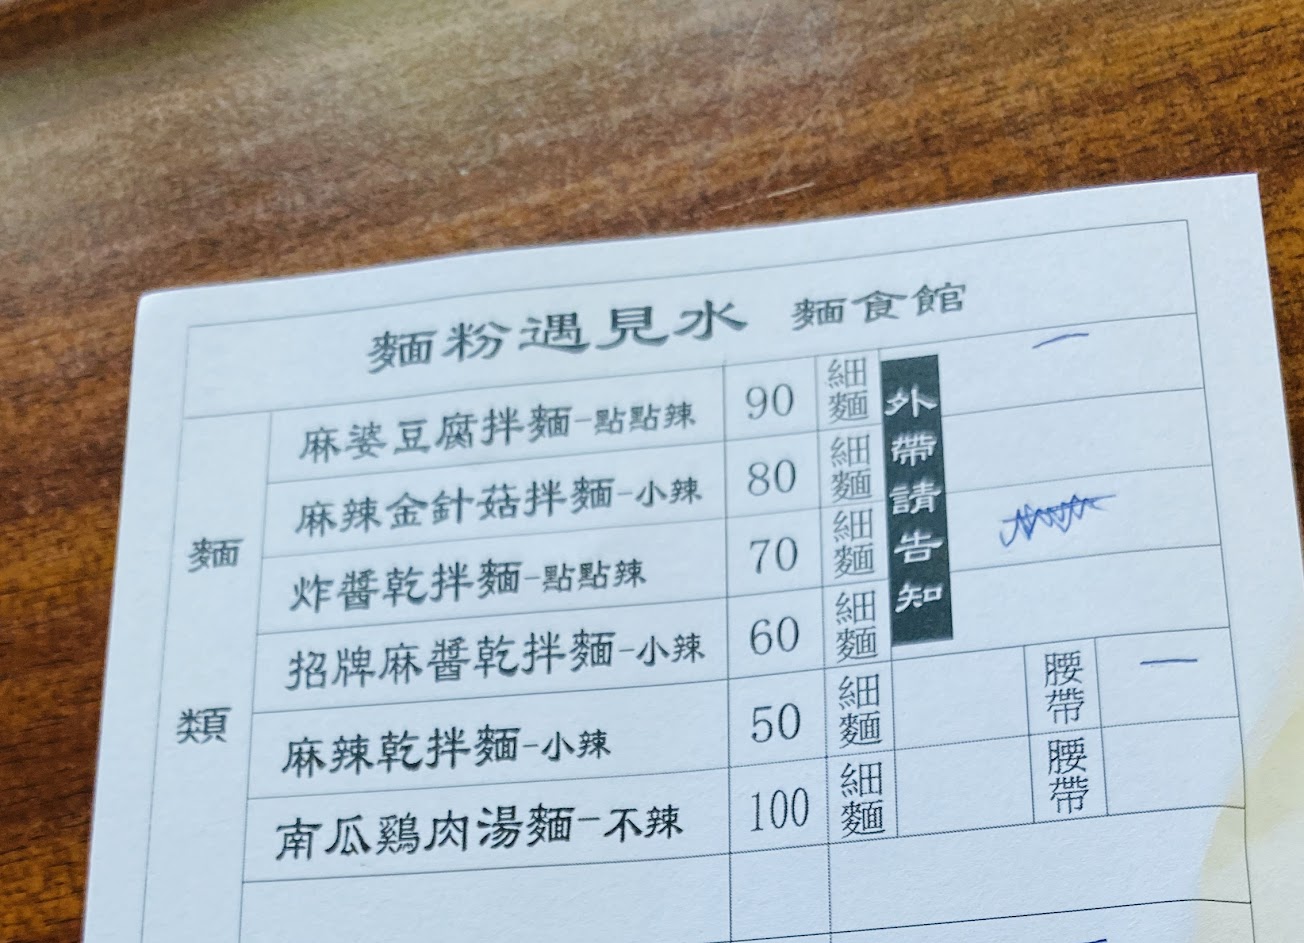 麵粉遇見水 麵食館
麵類
麻婆豆腐拌麵-點點辣 90 細麵
麻辣金針菇拌麵-小辣 80 細麵
炸醬乾拌麵-點點辣 70 細麵
招牌麻醬乾拌麵-小辣 60 細麵
麻辣乾拌麵-小辣 50 細麵 腰帶 一
南瓜鷄肉湯麵-不辣 100 細麵 腰帶
外帶請告知
一